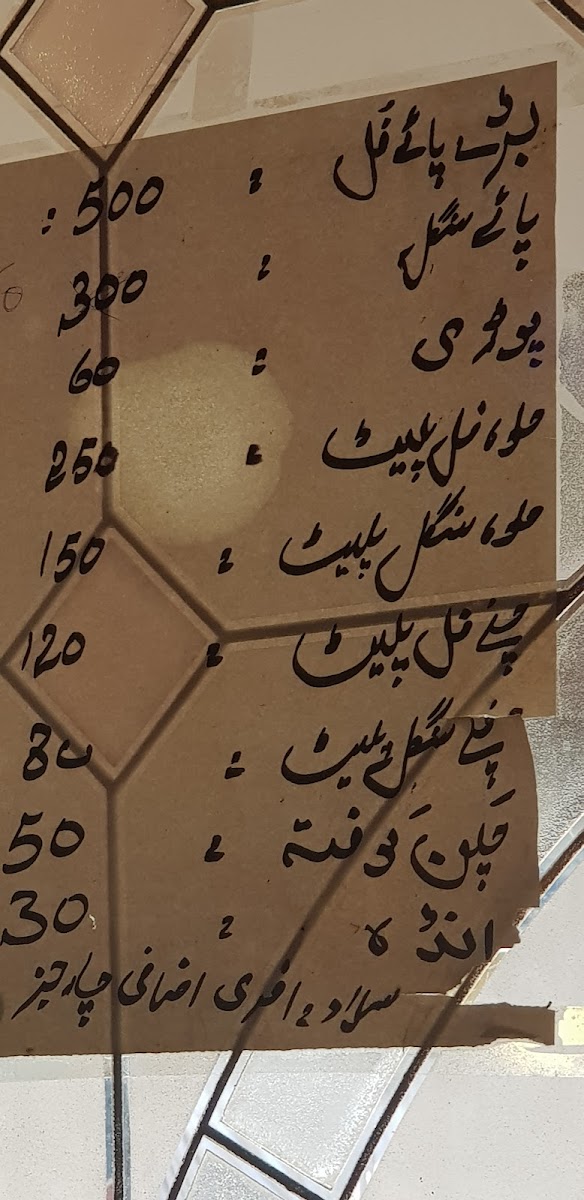 بڑے پائے فُل : 500 :
پائے سنگل : 300
پوڑی : 60
حلوہ فل پلیٹ : 250
حلوہ سنگل پلیٹ : 150
چنے فل پلیٹ : 120
چنے سنگل پلیٹ : 80
چکن کوفتہ : 50
انڈہ : 30
سلاد، اضافی چارجز